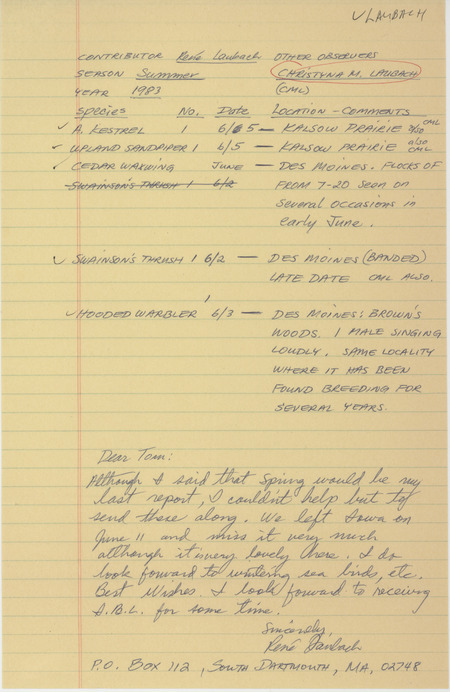 ✓LAUBACH
CONTRIBUTOR René Laubach OTHER OBSERVERS
SEASON Summer CHRISTYNA M. LAUBACH
YEAR 1983 (CML)
Species No. Date LOCATION - COMMENTS
✓ A. KESTREL 1 6/5 — KALSOW PRAIRIE also CML
✓ UPLAND SANDPIPER 1 6/5 — KALSOW PRAIRIE also CML
✓ CEDAR WAXWING JUNE — DES MOINES. FLOCKS OF
SWAINSON'S THRUSH 1 6/2 FROM 7-20 seen on
several occasions in
early June.
✓ SWAINSON'S THRUSH 1 6/2 — DES MOINES (BANDED)
LATE DATE CML ALSO.
✓ HOODED WARBLER 1 6/3 — DES MOINES; BROWN'S
WOODS. 1 MALE SINGING
LOUDLY. SAME LOCALITY
WHERE IT HAS BEEN
FOUND BREEDING FOR
SEVERAL YEARS.
Dear Tom:
Although I said that Spring would be my
last report, I couldn't help but to
send these along. We left Iowa on
June 11 and miss it very much
although it is very lovely here. I do
look forward to wintering sea birds, etc.
Best Wishes. I look forward to receiving
I.B.L. for some time.
Sincerely,
René Laubach
P.O. BOX 112, SOUTH DARTMOUTH, MA, 02748